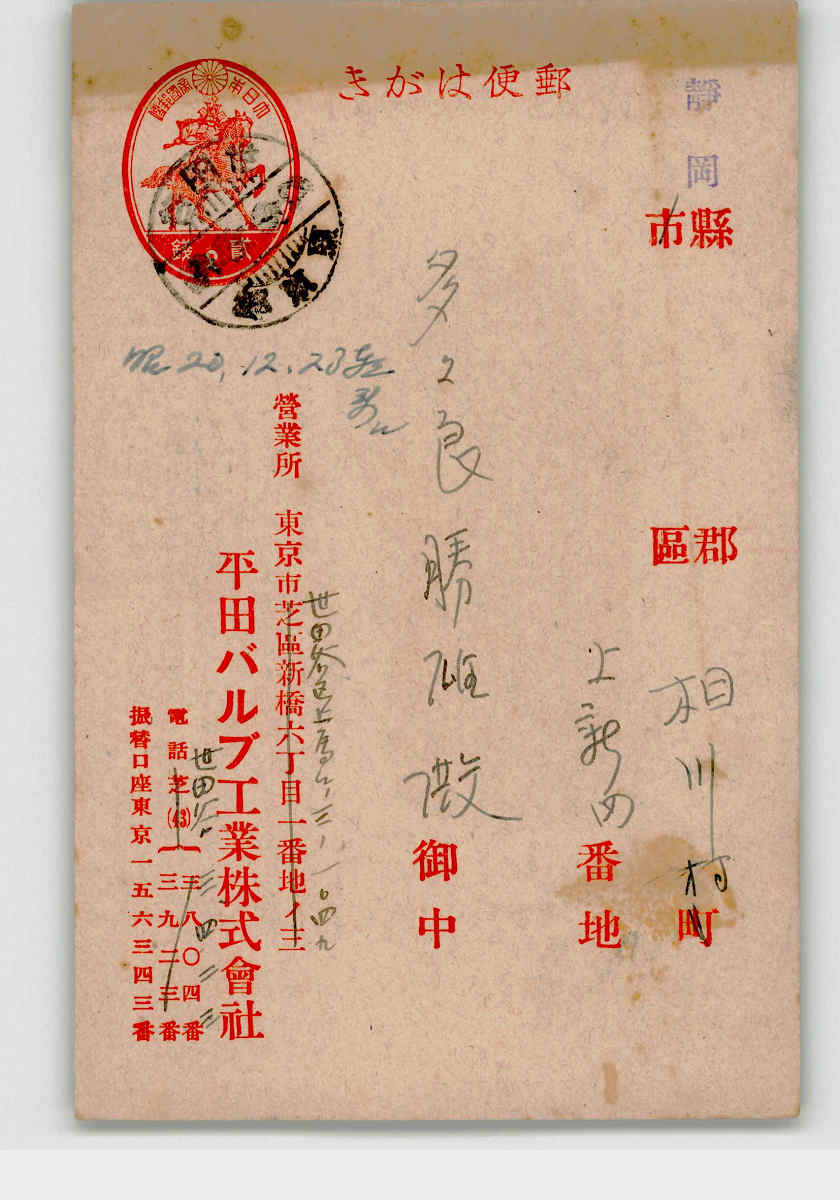 郵便はがき
大日本帝國郵便
貳錢
靜岡
縣市
郡區
相川村町
上新田
番地
多々良勝雄殿
御中
昭20.12.23
世田谷区上馬町三ノ一〇四九
營業所 東京市芝區新橋六丁目一番地ノ三
平田バルブ工業株式會社
世田谷 三四二三
電話芝(43) 三八〇四番
三九二三番
振替口座東京一五六三四三番